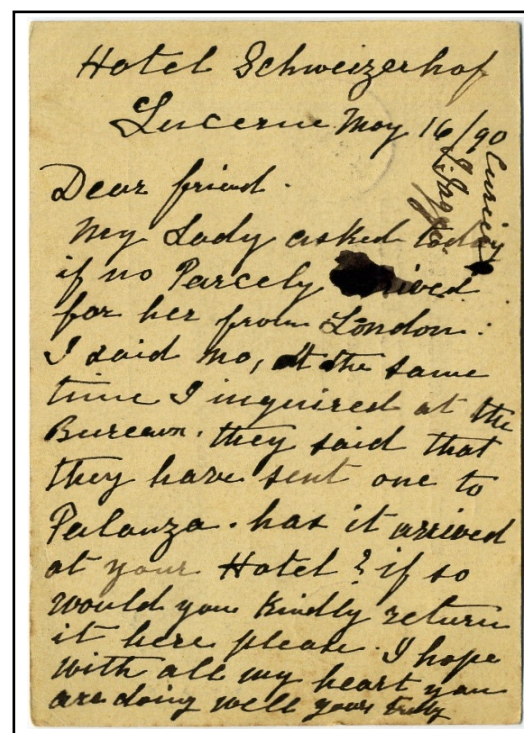 Hotel Schweizerhof
Lucerne May 16/90
Dear friend.
My Lady asked today
if no Parcely arrived
for her from London:
I said no, at the same
time I inquired at the
Bureau. they said that
they have sent one to
Palanza. has it arrived
at your Hotel? if so
would you kindly return
it here please. I hope
with all my heart you
are doing well yours truly